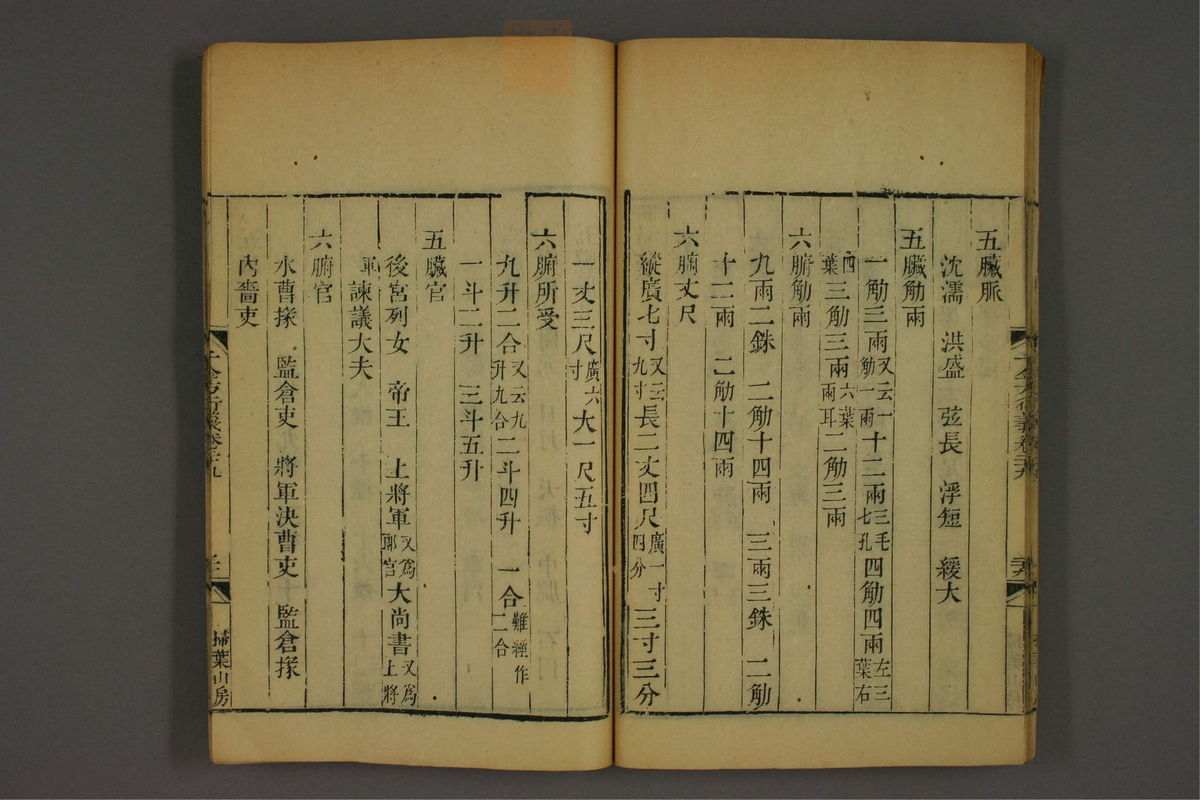 五臟脈
沈濡　洪盛　弦長　浮短　緩大
五臟觔兩
一觔三兩又云一觔一兩十二兩三毛七孔四觔四兩左三葉右
四葉三觔三兩六葉兩耳二觔三兩
六腑觔兩
九兩二銖　二觔十四兩　三兩三銖　二觔
十二兩　二觔十四兩
六腑丈尺
縱廣七寸又云九寸長二丈四尺廣一寸四分三寸三分
一丈三尺廣六寸大一尺五寸
六腑所受
九升二合又云九升九合二斗四升　一合難經作二合
一斗二升　三斗五升
五臟官
後宮列女　帝王　上將軍又爲郎官大尚書又爲上將
軍諫議大夫
六腑官
水曹掾　監倉吏　將軍決曹吏　監倉掾
內嗇吏
掃葉山房